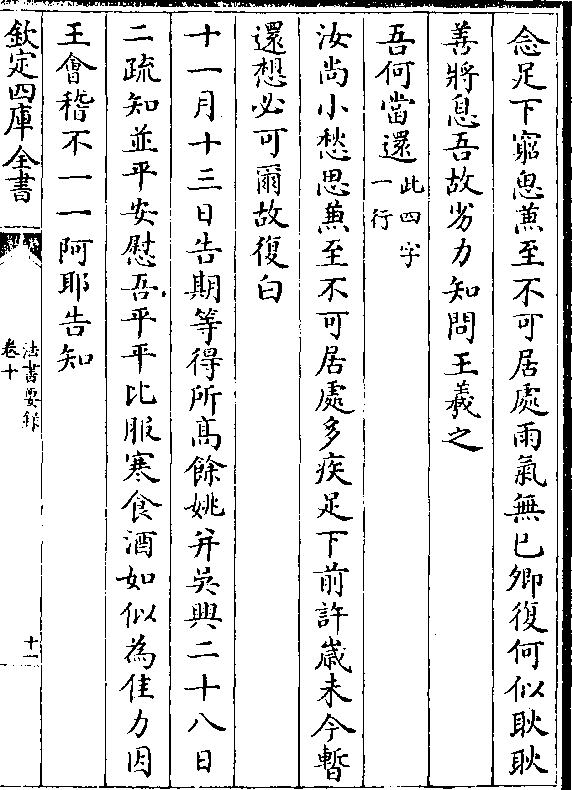 念足下窮思蕉至不可居處雨氣無已卿復何似耿耿
善將息吾故劣力知問王羲之
吾何當還此四字一行
汝尚小愁思蕉至不可居處多疾足下前許歳末今暫
還想必可爾故復白
十一月十三日告期等得所髙餘姚并吳興二十八日
二疏知並平安慰吾平平比服寒食酒如似為佳力因
王會稽不一一阿耶告知
欽定四庫全書
法書要録
卷十
十一